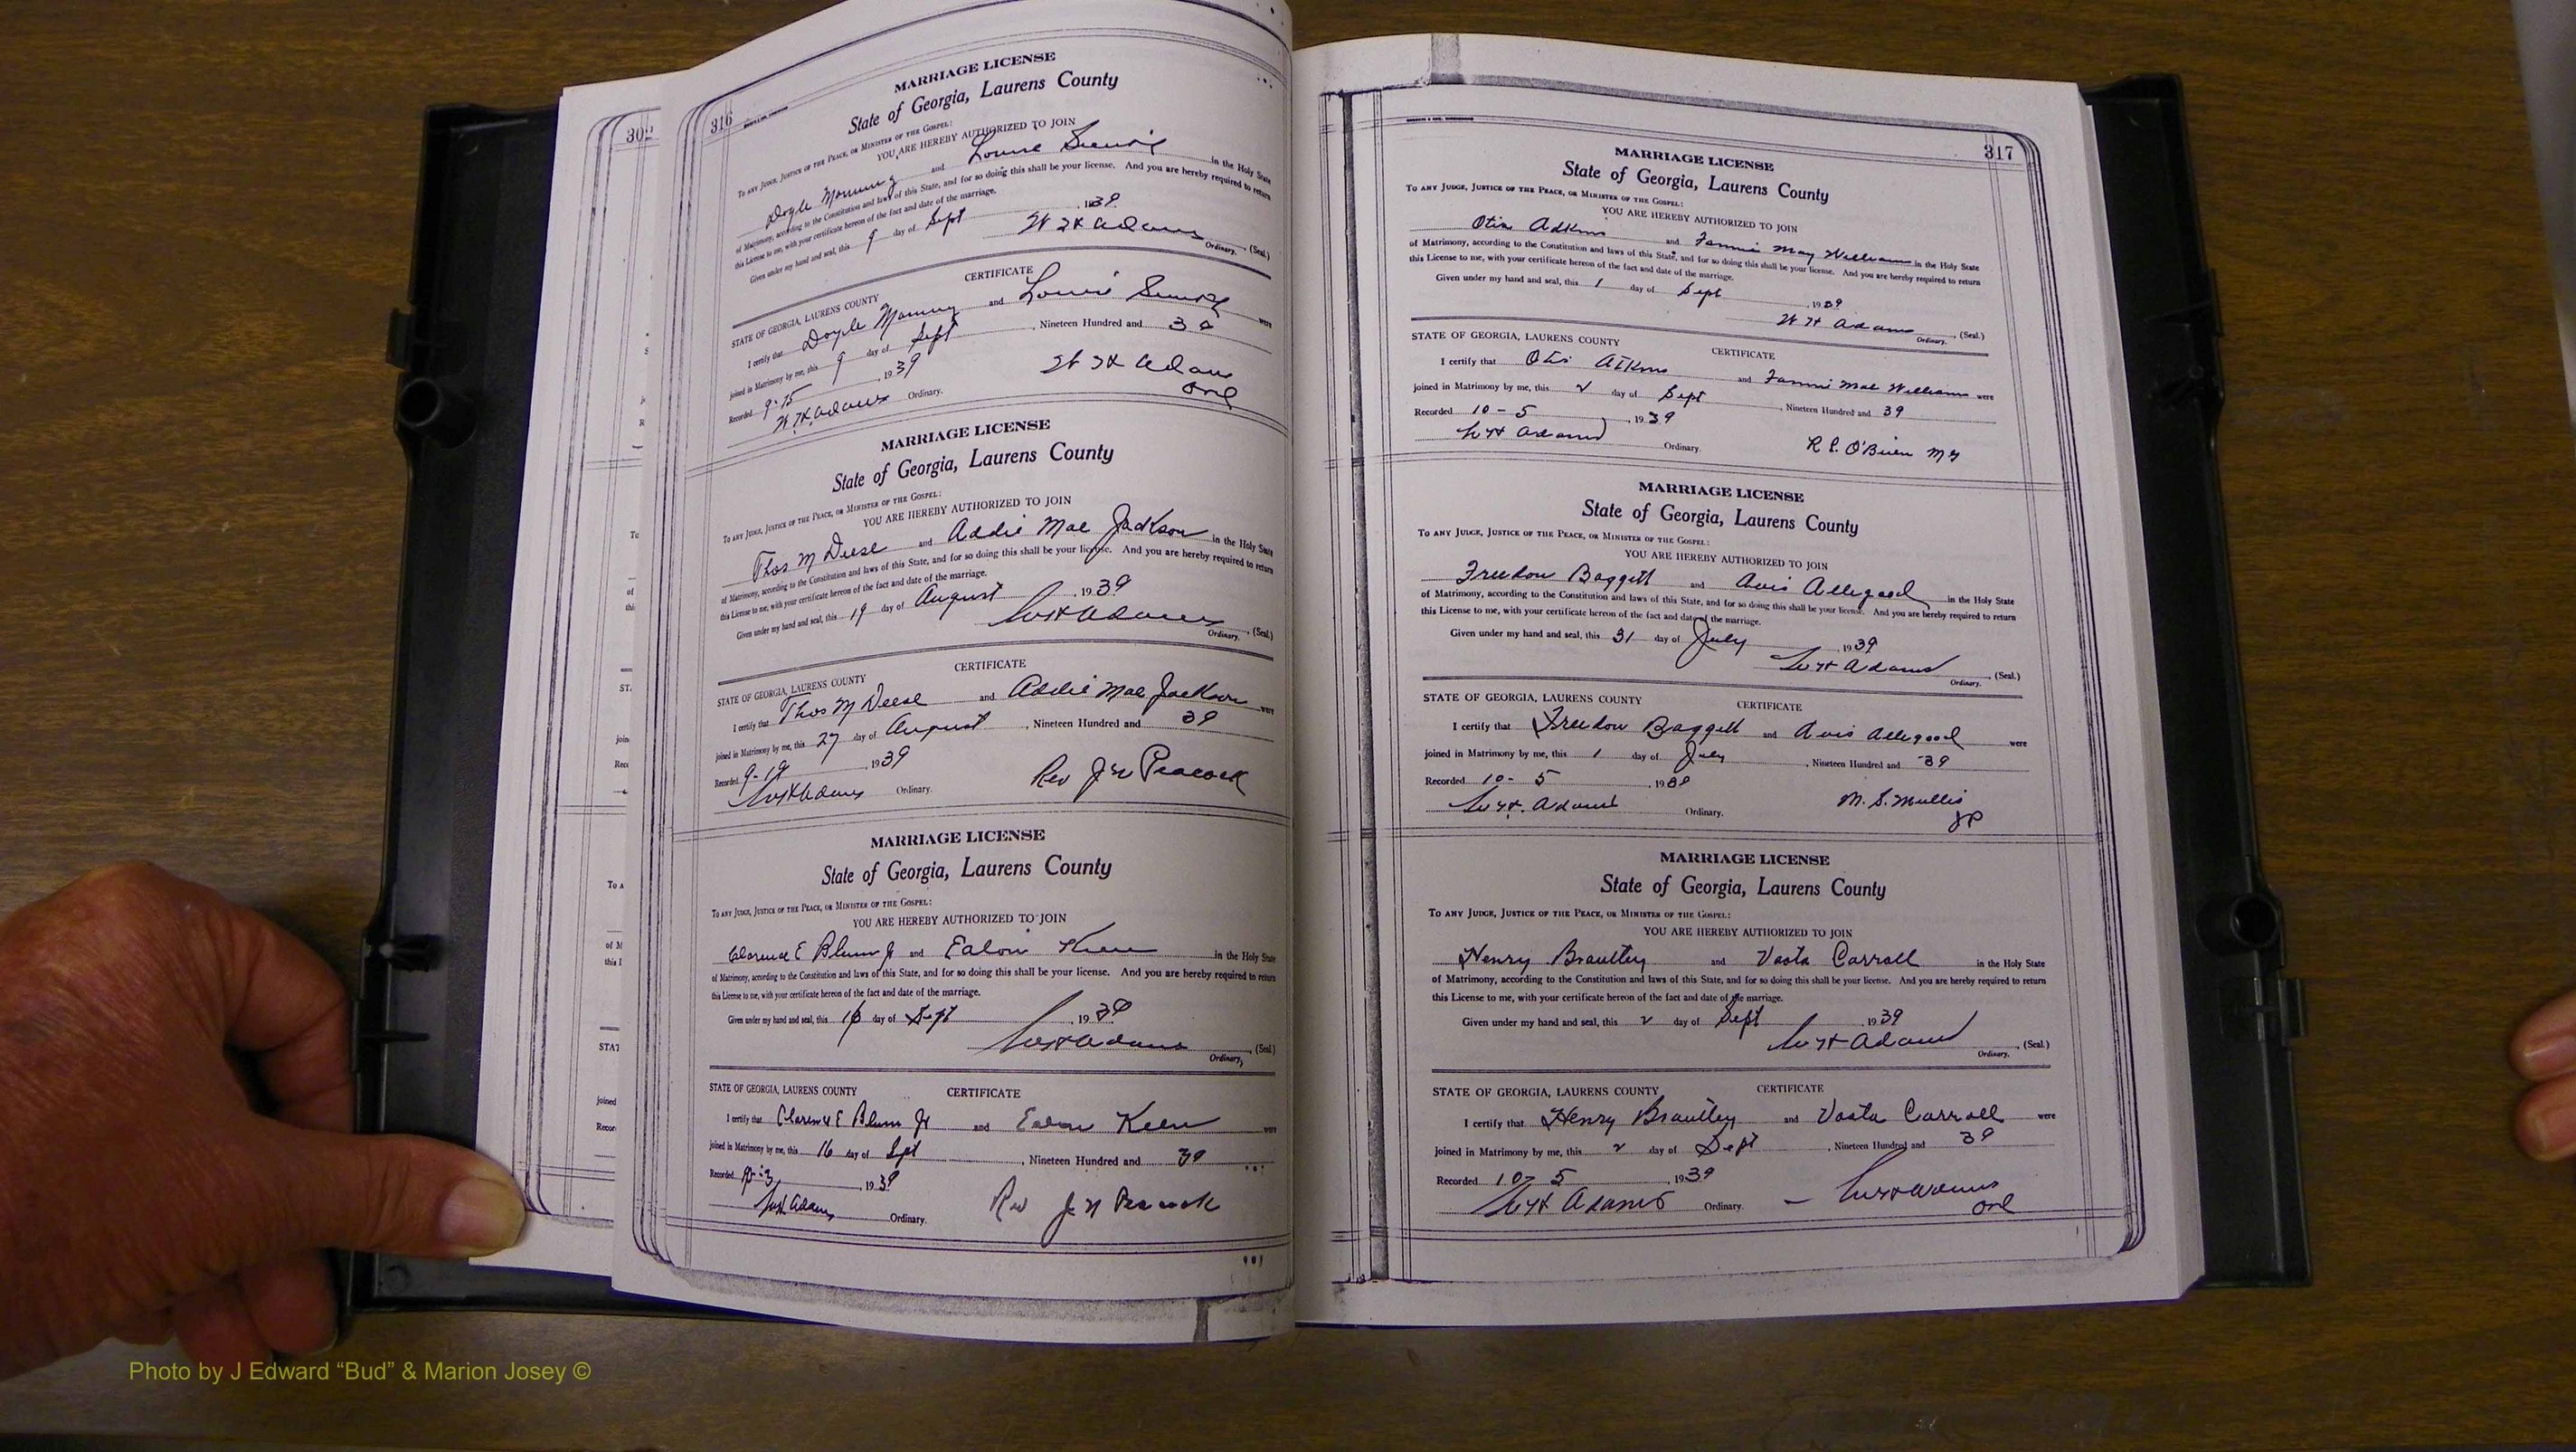 302
316
MARRIAGE LICENSE
State of Georgia, Laurens County
To any Judge, Justice of the Peace, or Minister of the Gospel:
YOU ARE HEREBY AUTHORIZED TO JOIN
Doyle and Louise in the Holy State
of Matrimony, according to the Constitution and laws of this State, and for so doing this shall be your license. And you are hereby required to return
this License to me, with your certificate hereon of the fact and date of the marriage.
Given under my hand and seal, this 9 day of Sept, 1939
W H Adams (Seal.)
Ordinary.
CERTIFICATE
STATE OF GEORGIA, LAURENS COUNTY
I certify that Doyle and Louise were
joined in Matrimony by me, this 9 day of Sept, Nineteen Hundred and 39
Recorded 9-15, 1939
W H Adams
W.H. Adams Ordinary. Ord
MARRIAGE LICENSE
State of Georgia, Laurens County
To any Judge, Justice of the Peace, or Minister of the Gospel:
YOU ARE HEREBY AUTHORIZED TO JOIN
Thos M Deese and Addie Mae Jackson in the Holy State
of Matrimony, according to the Constitution and laws of this State, and for so doing this shall be your license. And you are hereby required to return
this License to me, with your certificate hereon of the fact and date of the marriage.
Given under my hand and seal, this 19 day of August, 1939
W H Adams (Seal.)
Ordinary.
CERTIFICATE
STATE OF GEORGIA, LAURENS COUNTY
I certify that Thos M Deese and Addie Mae Jackson were
joined in Matrimony by me, this 27 day of August, Nineteen Hundred and 39
Recorded 9-19, 1939
W H Adams Ordinary. Rev J N Peacock
MARRIAGE LICENSE
State of Georgia, Laurens County
To any Judge, Justice of the Peace, or Minister of the Gospel:
YOU ARE HEREBY AUTHORIZED TO JOIN
Clarence E Blum Jr and Ealow Keen in the Holy State
of Matrimony, according to the Constitution and laws of this State, and for so doing this shall be your license. And you are hereby required to return
this License to me, with your certificate hereon of the fact and date of the marriage.
Given under my hand and seal, this 16 day of Sept, 1939
W H Adams (Seal.)
Ordinary,
STATE OF GEORGIA, LAURENS COUNTY CERTIFICATE
I certify that Clarence E Blum Jr and Keen were
joined in Matrimony by me, this 16 day of Sept, Nineteen Hundred and 39
Recorded, 1939
W H Adams Ordinary. Rev J N Peacock
317
MARRIAGE LICENSE
State of Georgia, Laurens County
To any Judge, Justice of the Peace, or Minister of the Gospel:
YOU ARE HEREBY AUTHORIZED TO JOIN
Otis Adkins and Fannie May Williams in the Holy State
of Matrimony, according to the Constitution and laws of this State, and for so doing this shall be your license. And you are hereby required to return
this License to me, with your certificate hereon of the fact and date of the marriage.
Given under my hand and seal, this 1 day of Sept, 1939
W H Adams (Seal.)
Ordinary.
STATE OF GEORGIA, LAURENS COUNTY CERTIFICATE
I certify that Otis Atkins and Fannie Mae Williams were
joined in Matrimony by me, this 2 day of Sept, Nineteen Hundred and 39
Recorded 10-5, 1939
W H Adams Ordinary. O'Brien
MARRIAGE LICENSE
State of Georgia, Laurens County
To any Judge, Justice of the Peace, or Minister of the Gospel:
YOU ARE HEREBY AUTHORIZED TO JOIN
Freedon Baggett and Avis Allegood in the Holy State
of Matrimony, according to the Constitution and laws of this State, and for so doing this shall be your license. And you are hereby required to return
this License to me, with your certificate hereon of the fact and date of the marriage.
Given under my hand and seal, this 31 day of July, 1939
W H Adams (Seal.)
Ordinary.
STATE OF GEORGIA, LAURENS COUNTY CERTIFICATE
I certify that Freedon Baggett and Avis Allegood were
joined in Matrimony by me, this 1 day of July, Nineteen Hundred and 39
Recorded 10-5, 1939
W.H. Adams Ordinary. M. S. Mullis
JP
MARRIAGE LICENSE
State of Georgia, Laurens County
To any Judge, Justice of the Peace, or Minister of the Gospel:
YOU ARE HEREBY AUTHORIZED TO JOIN
Henry Brantley and Vasta Carroll in the Holy State
of Matrimony, according to the Constitution and laws of this State, and for so doing this shall be your license. And you are hereby required to return
this License to me, with your certificate hereon of the fact and date of the marriage.
Given under my hand and seal, this 2 day of Sept, 1939
W H Adams (Seal.)
Ordinary.
STATE OF GEORGIA, LAURENS COUNTY CERTIFICATE
I certify that Henry Brantley and Vasta Carroll were
joined in Matrimony by me, this 2 day of Sept, Nineteen Hundred and 39
Recorded 10-5, 1939
W H Adams Ordinary. - W H Adams
Ord
Photo by J Edward “Bud” & Marion Josey ©